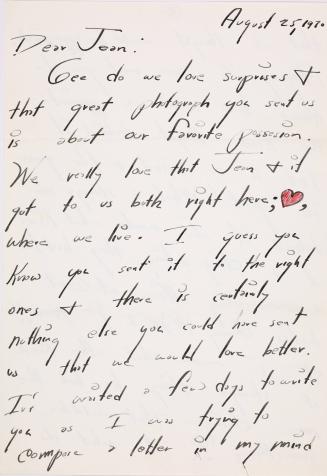 August 25, 1970
Dear Jean:
Gee do we love surprises &
that great photograph you sent us
is about our favorite possesion.
We really love that Jean & it
got to us both right here; ❤,
where we live. I guess you
Know you sent it to the right
ones & there is certainly
nothing else you could have sent
us that we would love better.
I've waited a few days to write
you as I was trying to
compose a letter in my mind